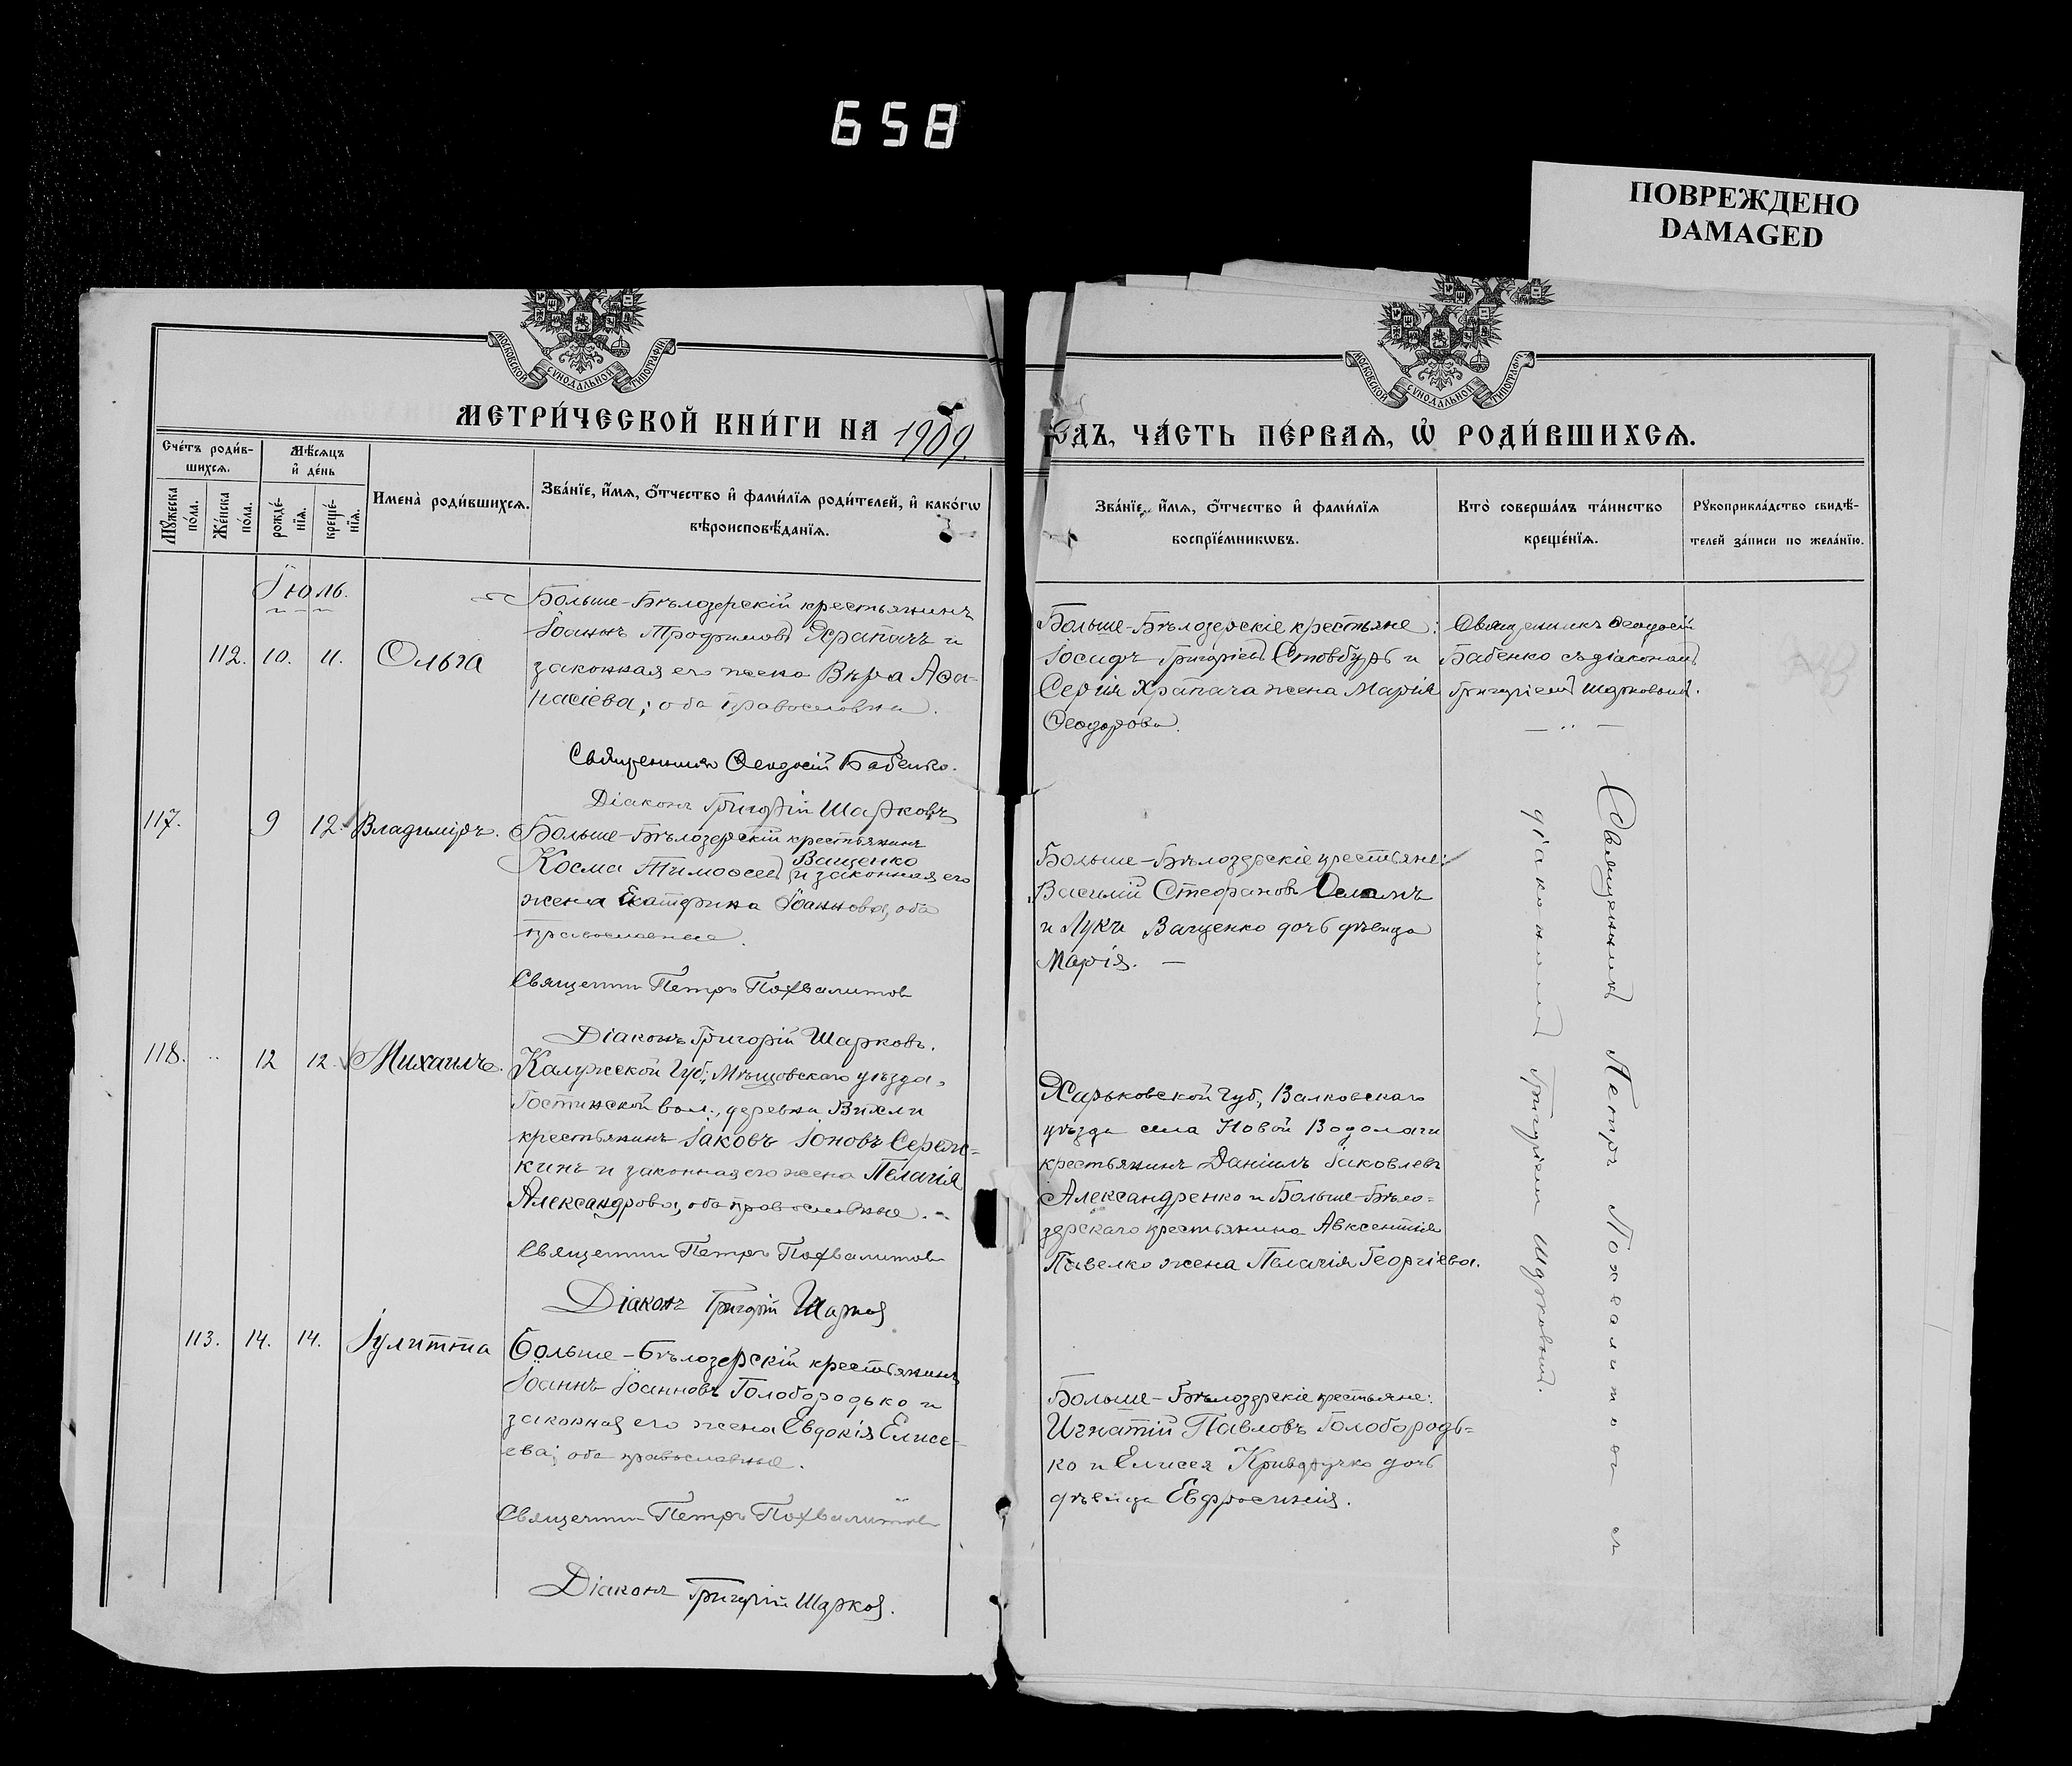 658
ПОВРЕЖДЕНО
DAMAGED
МОСКОВСКОЙ СѴНОДАЛЬНОЙ ТИПОГРАФІИ
МОСКОВСКОЙ СѴНОДАЛЬНОЙ ТИПОГРАФІИ
МЕТРИ́ЧЕСКОЙ КНИ́ГИ НА 1909
ГОДЪ, ЧА́СТЬ ПЕ́РВАѦ, Ѡ҆ РОДИ́ВШИХСѦ.
Сче́тъ роди́в-
шихсѧ.
Мꙋ́жеска по́ла.
Же́нска по́ла.
Мѣ́сѧцъ и҆ де́нь
рожде́нїѧ.
креще́нїѧ.
Имена̀ роди́вшихсѧ.
Зва́нїе, и҆́мѧ, ѻ҆́тчество и҆ фами́лїѧ роди́телей, и҆ како́гѡ
вѣроисповѣ́данїѧ.
Зва́нїе, и҆́мѧ, ѻ҆́тчество и҆ фами́лїѧ
воспрїе́мникѡвъ.
Кто̀ соверша́лъ та́инство
креще́нїѧ.
Рꙋкоприкла́дство свидѣ́-
телей за́писи по жела́нїю.
Іюль.
112. 10. 11. Ольга
Больше-Бѣлозерскій крестьянинъ
Іоаннъ Трофимовъ Храпачъ и
законная его жена Вѣра Аѳа-
насіева; оба православны.
Священникъ Ѳеодосій Бабенко.
Діаконъ Григорій Шарковъ
Больше-Бѣлозерскіе крестьяне:
Іосифъ Григоріевъ Стовбуръ и
Сергія Храпача жена Марія
Ѳеодорова.
Священникъ Ѳеодосій
Бабенко съ діакономъ
Григоріемъ Шарковымъ.
117. 9 12. Владиміръ.
Больше-Бѣлозерскій крестьянинъ
Косма Тимоѳеевъ Ващенко и законная его
жена Екатерина Іоаннова, оба
православные.
Священник Петръ Похвалитовъ
Діаконъ Григорій Шарковъ.
Больше-Бѣлозерскіе крестьяне:
Василій Стефановъ
и Луки Ващенко дочь дѣвица
Марія.
118. 12 12. Михаилъ.
Калужской Губ., Мѣщовскаго уѣзда,
Гостинской вол., деревни
крестьянинъ Іаковъ Іоновъ
и законная его жена Пелагія
Александрова, оба православные.
Священник Петръ Похвалитовъ
Діаконъ Григорій Шарковъ
Харьковской губ., Валковскаго
уѣзда села Новой Водолаги
крестьянинъ Даніилъ Іаковлевъ
Александренко и Больше-Бѣло-
зерскаго крестьянина Авксентія
Павелко жена Пелагія Георгіева.
113. 14. 14. Іулитта
Больше-Бѣлозерскій крестьянинъ
Іоаннъ Іоанновъ Голобородько и
законная его жена Евдокія Елисе-
ева; оба православные.
Священник Петръ Похвалитовъ
Діаконъ Григорій Шарковъ.
Больше-Бѣлозерскіе крестьяне:
Игнатій Павловъ Голобородь-
ко и Елисея Криворучко дочь
дѣвица Евфросинія.
Священникъ Петръ Похвалитовъ съ
діакономъ Григоріемъ Шарковымъ.